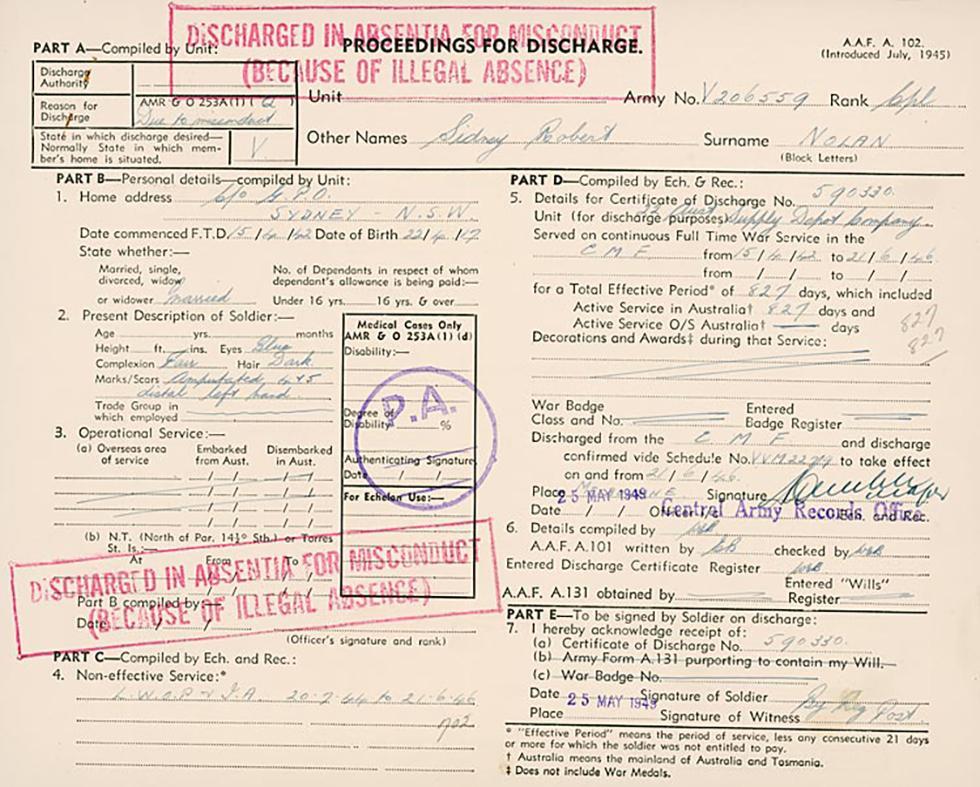 DISCHARGED IN ABSENTIA FOR MISCONDUCT
(BECAUSE OF ILLEGAL ABSENCE)
PROCEEDINGS FOR DISCHARGE.
A.A.F. A. 102.
(Introduced July, 1945)
PART A—Compiled by Unit:
Discharge Authority
Reason for Discharge AMR & O 253A(1) ( a )
Due to misconduct
State in which discharge desired—
Normally State in which mem-
ber's home is situated. V
Unit Army No. V206559 Rank Cpl
Other Names Sidney Robert Surname NOLAN
(Block Letters)
PART B—Personal details—compiled by Unit:
1. Home address c/o G.P.O.
SYDNEY - N.S.W.
Date commenced F.T.D. 15/4/42 Date of Birth 22/4/17
State whether:—
Married, single, divorced, widow or widower married
No. of Dependants in respect of whom
dependant's allowance is being paid:—
Under 16 yrs. 16 yrs. & over
2. Present Description of Soldier:—
Age yrs. months
Height ft. ins. Eyes Blue
Complexion Fair Hair Dark
Marks/Scars Amputated 4+5
distal left hand.
Trade Group in
which employed
3. Operational Service:—
(a) Overseas area of service Embarked from Aust. Disembarked in Aust.
/ / / /
/ / / /
/ / / /
/ / / /
(b) N.T. (North of Par. 14½° Sth.) or Torres
St. Is.:—
At From To
/ / / /
DISCHARGED IN ABSENTIA FOR MISCONDUCT
(BECAUSE OF ILLEGAL ABSENCE)
Part B compiled by—
Date / /
(Officer's signature and rank)
Medical Cases Only
AMR & O 253A(1) (d)
Disability:—
P.A.
Degree of
Disability %
Authenticating Signature
Date / /
For Echelon Use:—
PART C—Compiled by Ech. and Rec.:
4. Non-effective Service:*
L.W.O.P & I.A. 20-7-44 to 21-6-46
702
PART D—Compiled by Ech. & Rec.:
5. Details for Certificate of Discharge No. 590330.
Unit (for discharge purposes) Aust Supply Depot Company
Served on continuous Full Time War Service in the
C M F from 15/4/42 to 21/6/46
from / / to / /
for a Total Effective Period* of 827 days, which included
Active Service in Australia† 827 days and
Active Service O/S Australia† — days
827
827
Decorations and Awards‡ during that Service:
War Badge
Class and No. Entered
Badge Register
Discharged from the C M F and discharge
confirmed vide Schedule No. to take effect
on and from 21/6/46
Place Signature
25 MAY 1949
Date / / Central Army Records Office
Ech. and Rec.
6. Details compiled by
A.A.F. A.101 written by checked by
Entered Discharge Certificate Register
A.A.F. A.131 obtained by Entered "Wills"
Register
PART E—To be signed by Soldier on discharge:
7. I hereby acknowledge receipt of:
(a) Certificate of Discharge No. 590330.
(b) Army Form A.131 purporting to contain my Will.
(c) War Badge No.
Date 25 MAY 1949 Signature of Soldier By Reg Post.
Place Signature of Witness
* "Effective Period" means the period of service, less any consecutive 21 days
or more for which the soldier was not entitled to pay.
† Australia means the mainland of Australia and Tasmania.
‡ Does not include War Medals.